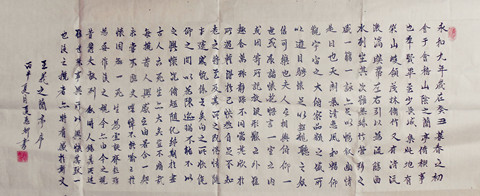 永和九年歲在癸丑暮春之初
會于會稽山陰之蘭亭脩禊事
也群賢畢至少長咸集此地有
崇山峻領茂林脩竹又有清流
激湍暎帶左右引以為流觴曲
水列坐其次雖無絲竹管弦之
盛一觴一詠亦足以暢敘幽情
是日也天朗氣清惠風和暢仰
觀宇宙之大俯察品類之盛所
以遊目騁懷足以極視聽之娛
信可樂也夫人之相與俯仰一
世或取諸懷抱悟言一室之內
或因寄所託放浪形骸之外雖
趣舍萬殊靜躁不同當其欣於
所遇蹔得於己快然自足不知
老之將至及其所之既惓情隨
事遷感慨係之矣向之所欣俛
仰之間以為陳迹猶不能不以
之興懷況脩短隨化終期於盡
古人云死生亦大矣豈不痛哉
每攬昔人興感之由若合一契
未嘗不臨文嗟悼不能喻之於
懷固知一死生為虛誕齊彭殤
為妄作後之視今亦由今之視
昔悲夫故列敘時人錄其所述
雖世殊事異所以興懷其致一
也後之攬者亦將有感於斯文
王羲之蘭亭序
夏月書